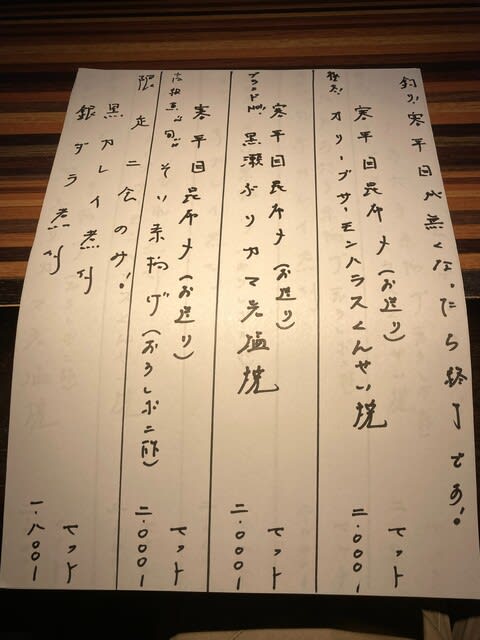 釣り!寒平目が無くなったら終了です!
極烈 寒平目昆布〆(お造り)
オリーブサーモンハラスくんせい焼
セット
二.〇〇〇-
ブランドNo1. 寒平目昆布〆(お造り)
黒瀬ぶりカマ岩塩焼
セット
二.〇〇〇-
寒平目昆布〆(お造り)
そい素揚げ(おろしポン酢)
セット
二.〇〇〇-
限定二食のみ!
黒カレイ煮付
銀ダラ煮付
セット
一.八〇〇-